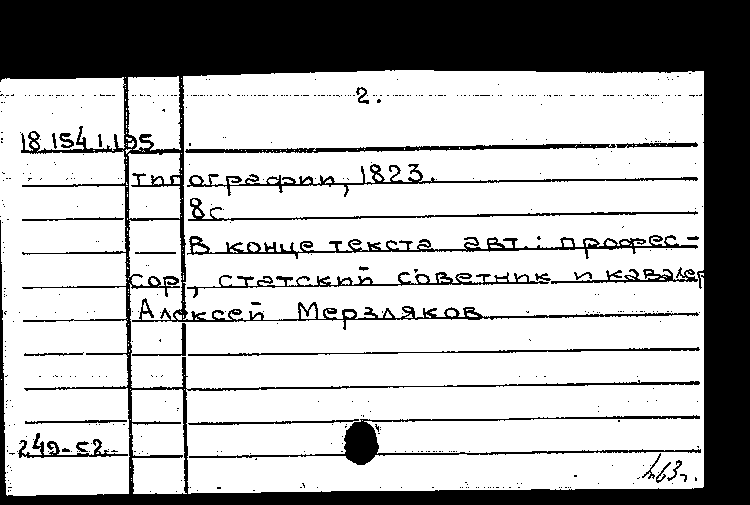 2.
18.154.1.195
типографии, 1823.
8с
В конце текста авт.: профес-
сор, статский советник и кавалер
Алексей Мерзляков
249-52